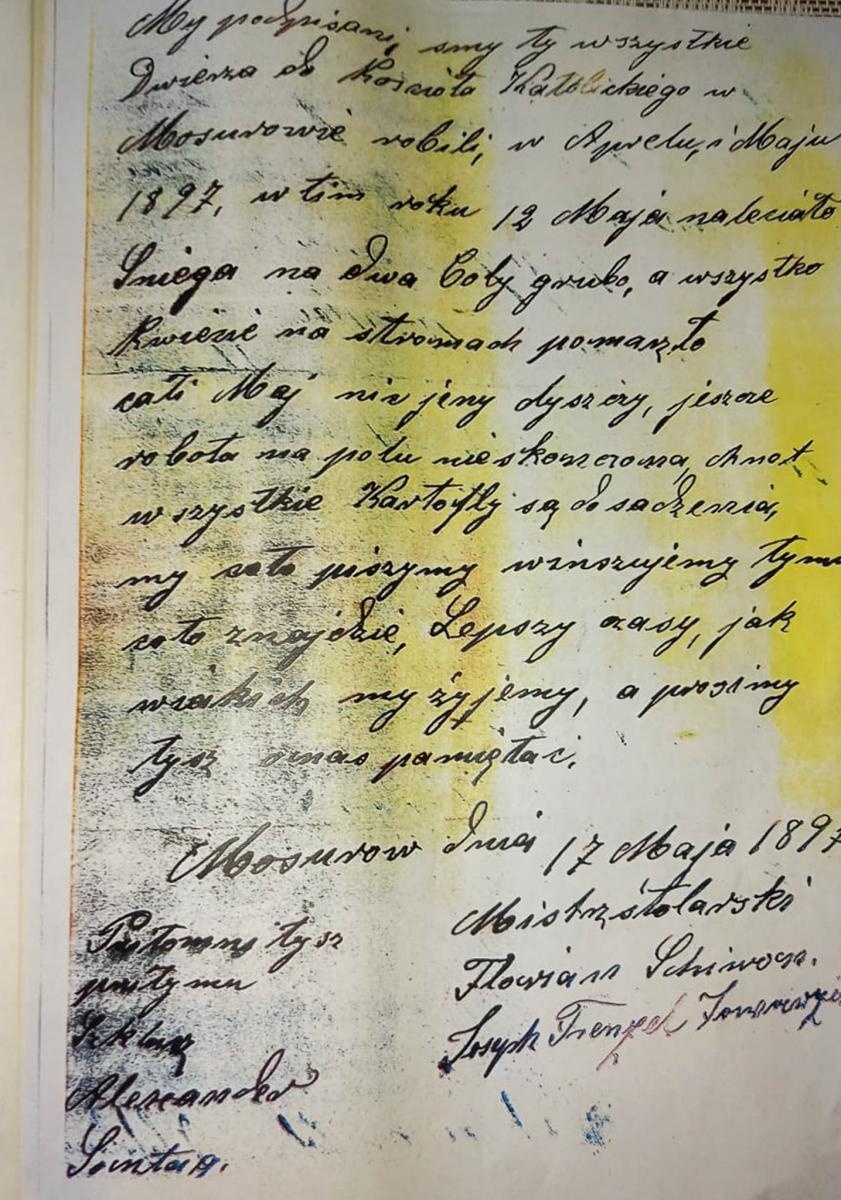 My podpisani, smy ty wszystkie
Dwierza do Koscioła Katolickiego w
Mosurowie robili, w Aprelu, i Maju
1897, w tim roku 12 Maja naleciało
Sniega na dwa Coly grubo, a wszystko
Kwiecie na stromach pomarzło
cali Maj nic jeny dyszczy, jeszcze
robota na polu nieskonczona,
wszystkie Kartofly są do sadzenia,
my coto piszymy winszujemy tymu
coto znajdzie, Lepszy czasy, jak
wiakich my żyjemy, a prosimy
tysz onas pamiętać.
Mosurow dnia 17 Maja 1897
Mistrz stolarski
Florian Schiwon.
Joseph Frenzel
tysz
przitymu
Szklorz
Alexander
Sontag.